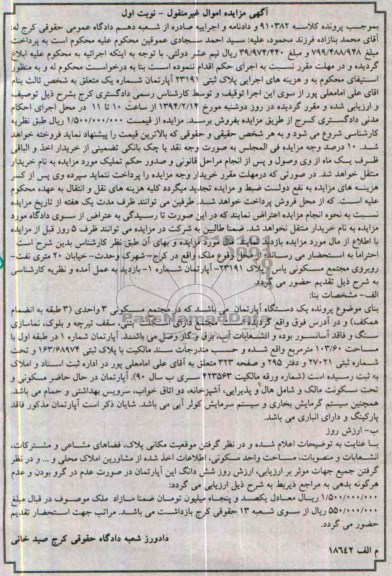 آگهی مزایده اموال غیرمنقول - نوبت اول
بموجب پرونده کلاسه ۹۱۰۳۸۲ و دادنامه و اجراییه صادره از شعبه دهم دادگاه عمومی حقوقی کرج له:
آقای محمد بنازاده فرزند محمود، علیه: سید احمد سجادی عموقین محکوم علیه محکوم است به پرداخت
مبلغ ۷۹۹/۴۸۸/۹۴۸ و مبلغ ۳۹/۹۷۴/۴۴۰ ریال نیم عشر دولتی. با توجه به اینکه اجرائیه به محکوم علیه ابلاغ
گردیده و در مهلت مقرر نسبت به اجرای حکم اقدام ننموده است بنا به درخواست محکوم له و به منظور
استیفای محکوم به و هزینه های اجرایی پلاک ثبتی ۲۳۱۹۱ آپارتمان شماره یک متعلق به شخص ثالث بنام
آقای علی امامعلی پور از سوی این اجرا توقیف و توسط کارشناس رسمی دادگستری کرج بشرح ذیل توصیف
و ارزیابی شده و مقرر گردیده در روز دوشنبه مورخ ۱۳۹۴/۲/۱۴ از ساعت ۱۰ تا ۱۱ در محل اجرای احکام
مدنی دادگستری کرج از طریق مزایده بفروش برسد. مزایده از قیمت ۱/۵۰۰/۰۰۰/۰۰۰ ریال طبق نظریه
کارشناسی شروع می شود و به هر شخص حقیقی و حقوقی که بالاترین قیمت را پیشنهاد نماید فروخته خواهد
شد. ۱۰ درصد وجه مزایده فی المجلس به صورت وجه نقد یا چک بانکی تضمینی از خریدار اخذ و الباقی
ظرف یک ماه از وی وصول و پس از انجام مراحل قانونی و صدور حکم تملیک مورد مزایده به نام خریدار
منتقل خواهد شد. در صورتی که درمهلت مقرر خریدار وجه مزایده را پرداخت ننماید سپرده وی پس از کسر
هزینه های مزایده به نفع دولت ضبط و مزایده تجدید میگردد کلیه هزینه های نقل و انتقال به عهده محکوم
علیه است. که از محل فروش پرداخت خواهد شد. طرفین می توانند ظرف مدت یک هفته از تاریخ مزایده
نسبت به نحوه انجام مزایده اعتراض نمایند که در این صورت تا رسیدگی به اعتراض از سوی دادگاه مورد
مزایده به نام خریدار منتقل نخواهد شد. ضمنا طالبین به شرکت در مزایده می توانند ظرف ۵ روز قبل از مزایده
با اطلاع از مال مورد مزایده بازدید نمایند. مال مورد مزایده و بهای آن طبق نظر کارشناس بدین شرح است
احتراما به استحضار می رساند از محل وقوع ملک واقع در کرج- شهرک وحدت- خیابان ۲۰ متری نفت-
روبروی مجتمع مسکونی یاس- پلاک ۲۳۱۹۱- آپارتمان شماره ۱- بازدید به عمل آمده و نظریه کارشناسی
به شرح ذیل تقدیم حضور می گردد.
الف- مشخصات بنا:
بنای موضوع پرونده یک دستگاه آپارتمان می باشد که در مجتمع مسکونی ۳ واحدی (۳ طبقه به انضمام
همکف) و در آدرس فوق واقع گردیده است. مجتمع دارای اسکلت بتنی، سقف تیرچه و بلوک، نماسازی
سنگ و فاقد آسانسور بوده و انشعابات آب، برق و گاز رومی باشند. آپارتمان شماره ۱ در طبقه اول با
مساحت ۱۰۳/۶۰ مترمربع واقع شده و حسب مندرجات سند مالکیت با پلاک ثبتی ۱۶۳/۶۸۹۷۴ و تحت
شماره ثبتی ۲۷۰۲۱ و دفتر ۲۹۵ و صفحه ۳۲۳ متعلق به آقای علی امامعلی پور در اداره ثبت اسناد و املاک
به ثبت رسیده است (شماره ورقه مالکیت ۲۲۳۵۶۳ سری ب سال ۹۰). آپارتمان در حال حاضر مسکونی و
تحت سکونت مالک و شامل هال و پذیرایی، آشپزخانه، دو اتاق خواب، سرویس بهداشتی و حمام می باشد.
همچنین سیستم گرمایش بخاری و سیستم سرمایش کولر آبی می باشد. شایان ذکر است آپارتمان مذکور فاقد
پارکینگ و دارای انباری می باشد.
ب- ارزش روز
با عنایت به توضیحات اعلام شده و در نظر گرفتن موقعیت مکانی پلاک، فضاهای مشاعی و مشترکات،
انشعابات و منصوبات، مساحت واحد مسکونی، اطلاعات اخذ شده از مشاورین املاک محلی و ... و در نظر
گرفتن جمیع جهات موثر بر ارزیابی، ارزش روز شش دانگ این آپارتمان در صورت عدم در گرو بودن و عدم
هرگونه بدهی به مراجع ذیربط به شرح ذیل ارزیابی می گردد:
۱/۵۰۰/۰۰۰/۰۰۰ ریال معادل یکصد و پنجاه میلیون تومان ضمنا مازاد ملک موصوف در قبال مبلغ
۵۵۰/۰۰۰/۰۰۰ ریال از سوی شعبه ۱۳ حقوقی کرج بازداشت می باشد. مراتب جهت استحضار تقدیم
حضور می گردد.
دادورز شعبه دادگاه حقوقی کرج صید خانی
م الف ۱۸۶۴۲